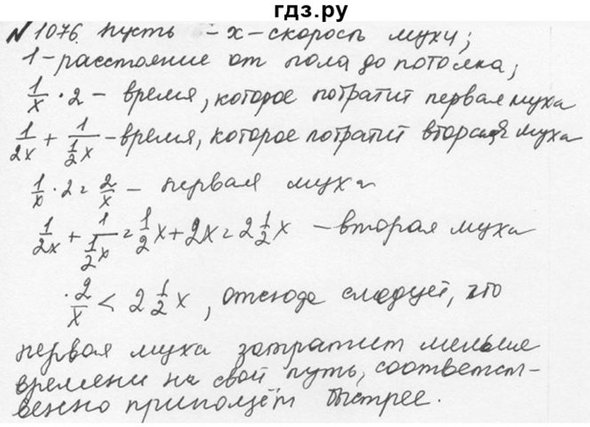 гдз.ру
№1076. Пусть - x - скорость мухи;
1 - расстояние от пола до потолка;
1/x · 2 - время, которое потратит первая муха
1/2x + 1/(1/2 x) - время, которое потратит вторая муха
1/x · 2 = 2/x - первая муха
1/2x + 1/(1/2 x) = 1/2 x + 2x = 2 1/2 x - вторая муха
· 2/x < 2 1/2 x, отсюда следует, что
первая муха затратит меньше
времени на свой путь, соответст-
венно приползёт быстрее.